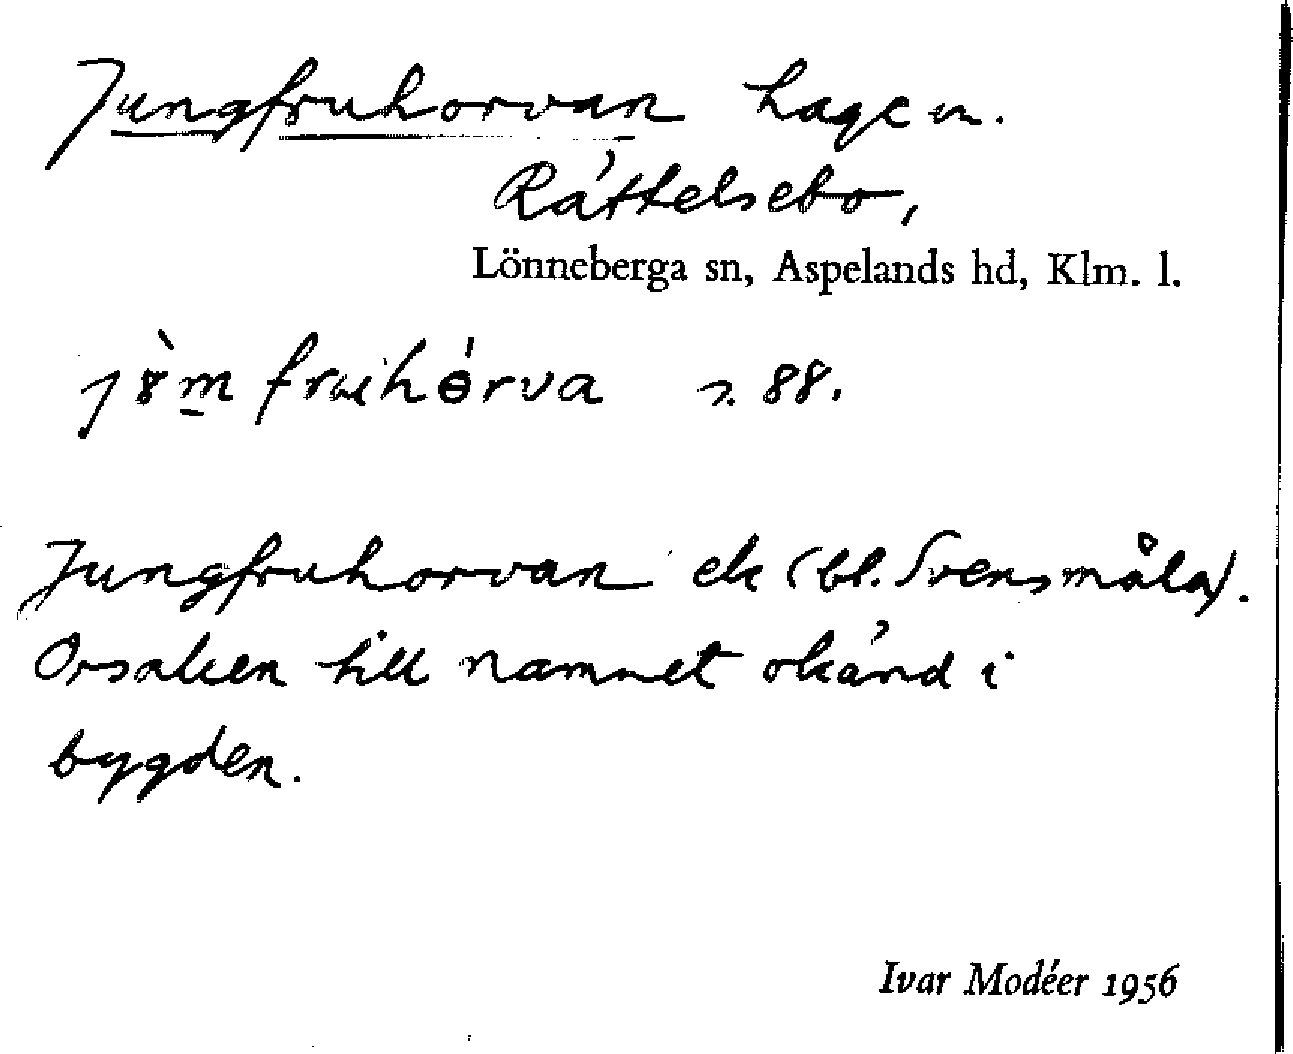 Jungfruhorvan hage m.
Rättelsebo,
Lönneberga sn, Aspelands hd, Klm. l.
s. 88.
Jungfruhorvan ek (bl. Svensmåla).
Orsaken till namnet okänd i
bygden.
Ivar Modéer 1956